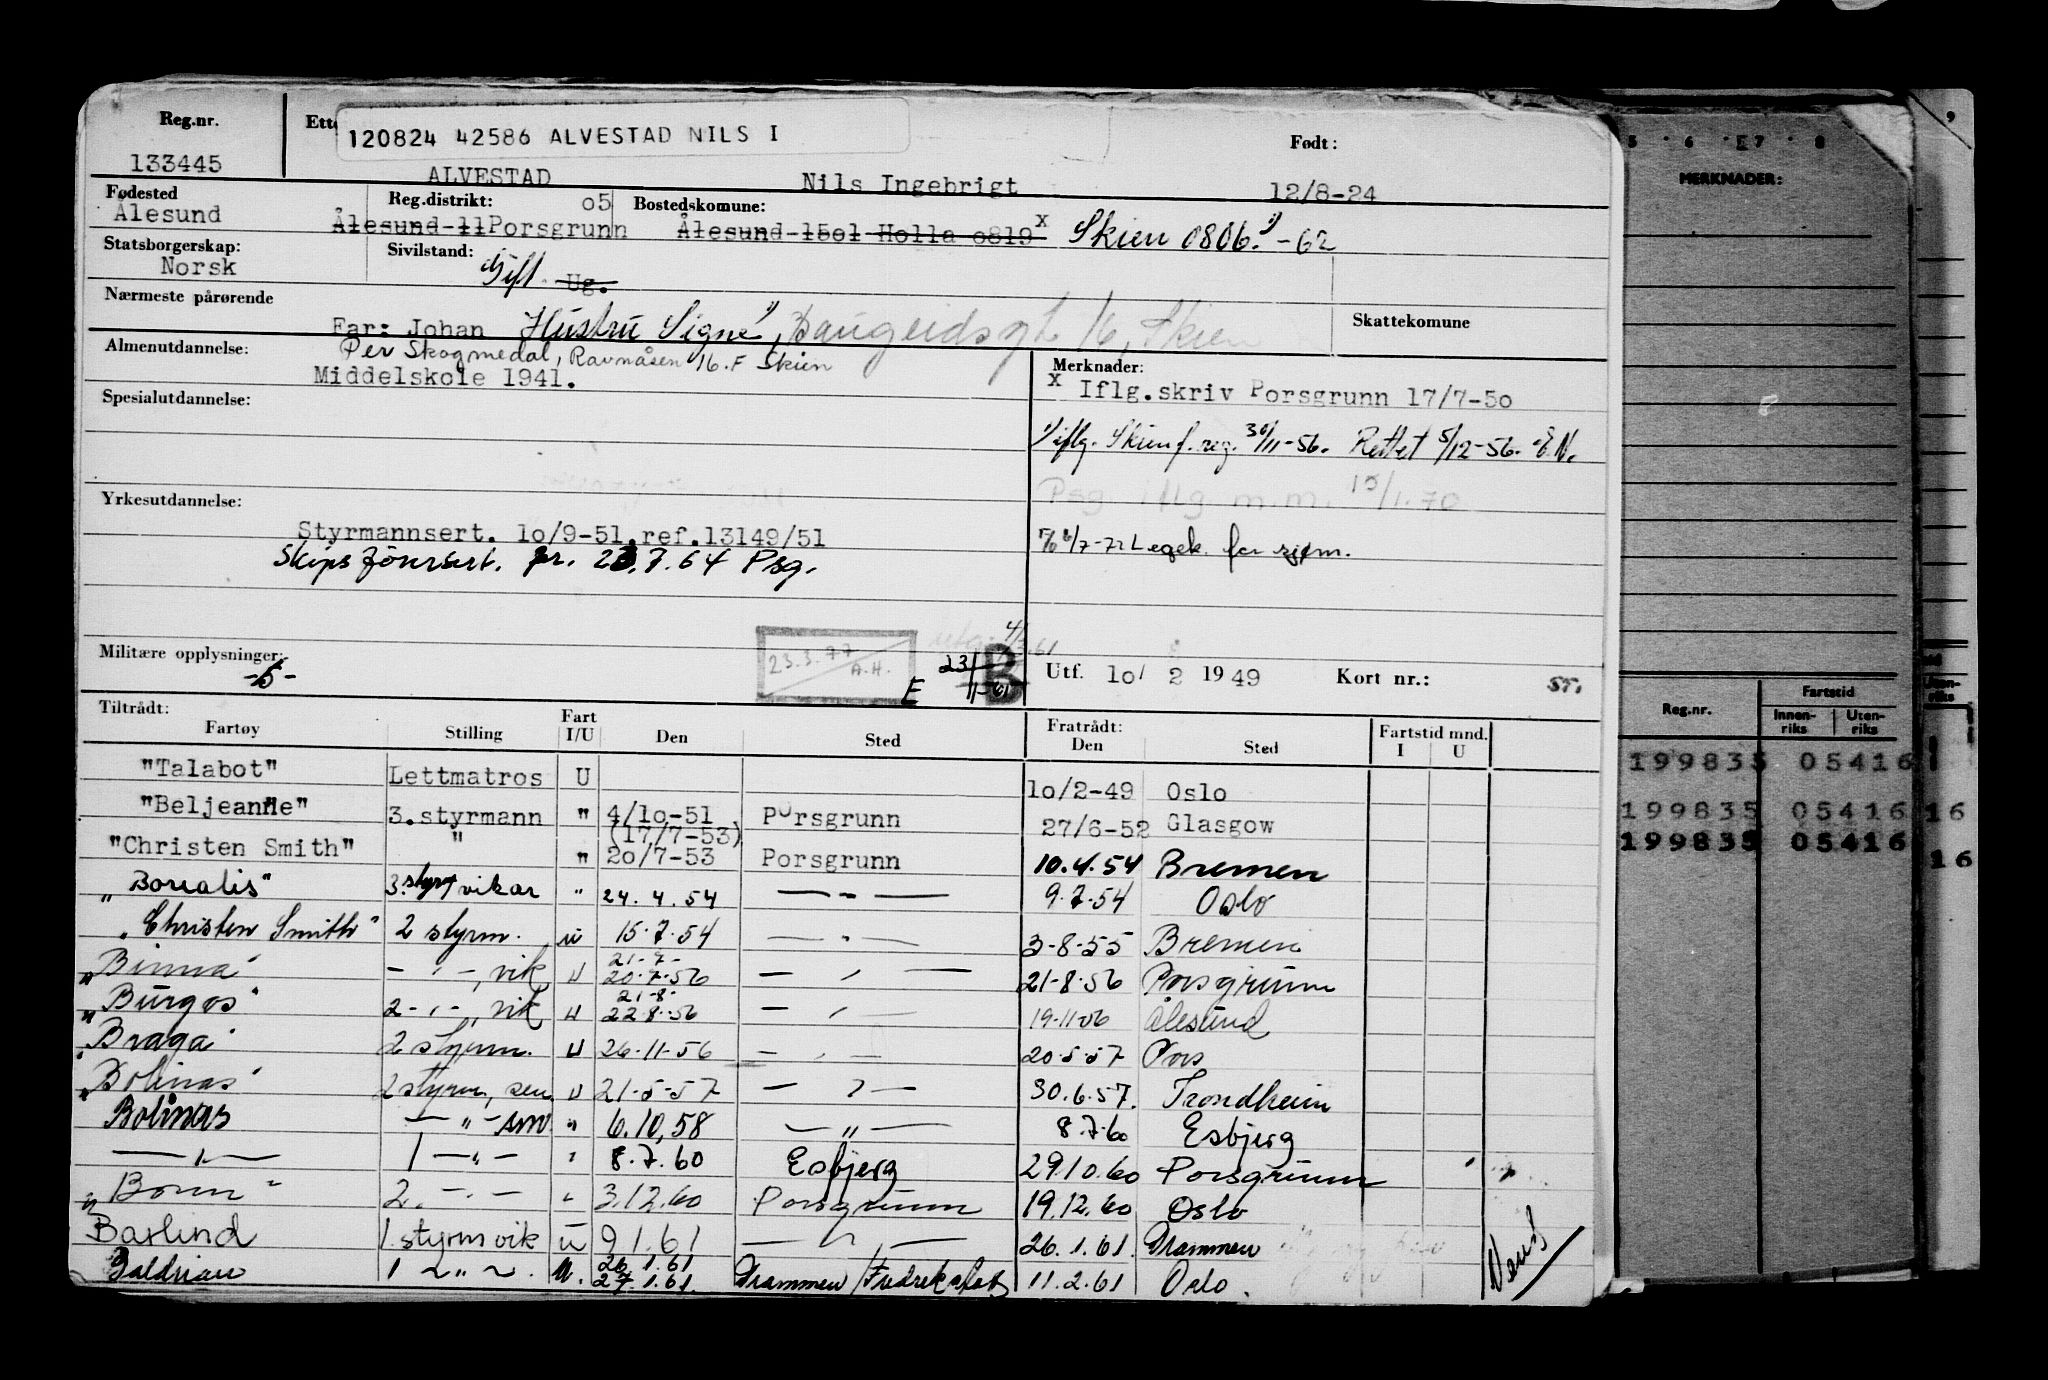 Reg.nr. Ette Født:
120824 42586 ALVESTAD NILS I
133445 ALVESTAD Nils Ingebrigt 12/8-24
Fødested Reg.distrikt: o5 Bostedskomune:
Ålesund Ålesund-11 Porsgrunn Ålesund-15o1 Holla o819 x Skien 0806. 1) -62
Statsborgerskap: Sivilstand:
Norsk Gift Ug.
Nærmeste pårørende Skattekomune
Far: Johan Hustru Signe 1), Baugeidsgt 16, Skien
Per Skogmedal, Ravnåsen 16.F Skien
Almenutdannelse: Merknader:
Middelskole 1941. x Iflg.skriv Porsgrunn 17/7-5o
Spesialutdannelse:
1) iflg. Skien f.reg. 30/11-56. Rettet 5/12-56. E.N.
Yrkesutdannelse: Psg iflg m.m. 15/1.70
Styrmannsert. 1o/9-51.ref.13149/51
Legek. for sjøm.
Skipsførersert. pr. 23.7.64 Psg.
Militære opplysninger: -5- 23.3.77 A.H. E 23/11-61 B
Utf. 1o/ 2 1949 Kort nr.: ST.
Tiltrådt: Fratrådt: Fartstid mnd.
Fartøy Stilling Fart I/U Den Sted Den Sted I U
"Talabot" Lettmatros U 1o/2-49 Oslo
"Beljeanne" 3.styrmann " 4/1o-51 Porsgrunn 27/6-52 Glasgow
(17/7-53)
"Christen Smith" " " 2o/7-53 Porsgrunn 10.4.54 Bremen
"Borealis" 3.styrm vikar " 24.4.54 — " — 9.7.54 Oslo
"Christen Smith" 2 styrm. u 15.7.54 — " — 3-8-55 Bremen
21-7-
"Binna" — " —, vik u 20.7.56 — " — 21-8-56 Porsgrunn
21-8-
"Burgos" 2 - " -, vik u 22.8.56 — " — 19-11-56 Ålesund
"Braga" 2 styrm. u 26-11-56 — " — 20-5-57 Pors
"Bolinas" 2 styrm, sen u 21-5-57 — " — 30.6.57. Trondheim
Bolinas — " — sen " 6.10,58 — " — 8.7.60 Esbjerg
— " — 1 — " — " 8.7.60 Esbjerg 29.10.60 Porsgrunn
"Bonn" 2. — " — " 3.12.60 Porsgrunn 19.12.60 Oslo
Baslind 1.styrm vik u 9 1.61 — " — 26.1.61. Drammen
26.1.61
Baldrian 1 — " — u. 27.1.61. Drammen/Fredrikstad 11.2.61 Oslo.
Vend
5 . 6 . 7 . 8
MERKNADER:
8
Reg.nr. Fartstid
Innen-riks Uten-riks
199835 05416
199835 05416 16
199835 05416 16
9
Uten-
riks